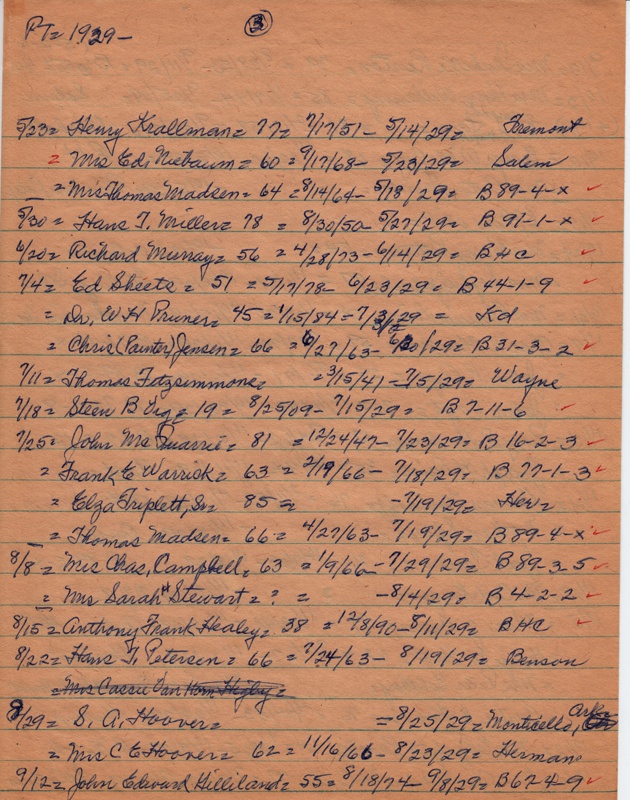 PT= 1929-
3
5/23= Henry Krallman= 77= 7/17/51- 5/14/29= Fremont
= Mrs Ed. Niebaum= 60= 9/17/68- 5/23/29= Salem
= Mrs Thomas Madsen= 64= 8/14/64- 5/18/29= B 89-4-x ✓
5/30= Hans T. Miller= 78 = 8/30/50- 5/27/29= B 91-1-x ✓
6/20= Richard Murray= 56 = 4/28/73-6/14/29= BHC ✓
7/4= Ed Sheets= 51 = 5/17/78- 6/23/29= B 44-1-9 ✓
= Dr. W H Pruner= 45=1/15/84=7/3/29= Kd
= Chris (Painter) Jensen= 66 = 6/27/63- 6/30/29= B 31-3-2 ✓
7/11= Thomas Fitzsimmons= =3/15/41-7/5/29= Wayne
7/18= Steen B = 19= 8/25/09- 7/15/29= B 7-11-6 ✓
7/25= John Mc Quarrie= 81 =12/24/47- 7/23/29= B 16-2-3 ✓
= Frank E Warrick= 63 = 2/19/66- 7/18/29= B 77-1-3 ✓
= Elza Triplett, Sr= 85= -7/19/29= Her=
= Thomas Madsen= 66= 4/27/63- 7/19/29= B 89-4-x ✓
8/8= Mrs Chas, Campbell= 63 = 1/9/66- 7/29/29= B 89-3-5 ✓
= Mrs Sarah H Stewart= ? = -8/4/29= B 4-2-2 ✓
8/15= Anthony Frank Healey= 38 =12/8/90-8/11/29= BHC ✓
8/22= Hans T. Petersen= 66 = 7/24/63- 8/19/29= Benson
=Mrs Cassie Van Horn Higby=
8/29= S. A. Hoover= =8/25/29=Monticello, Ark=
= Mrs C E Hoover= 62= 11/16/66- 8/23/29= Herman
9/12= John Edward Hilliland= 55= 8/18/74- 9/8/29= B 67-4-9 ✓